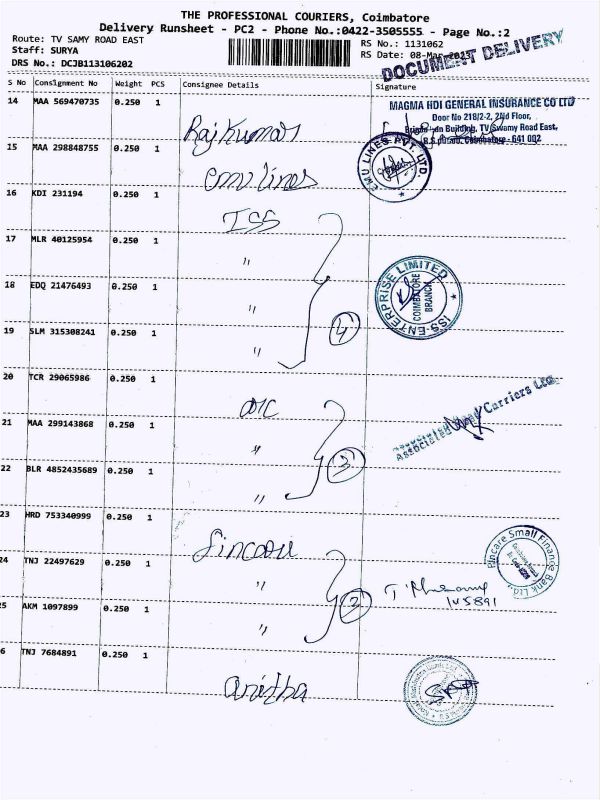 THE PROFESSIONAL COURIERS, Coimbatore
Delivery Runsheet - PC2 - Phone No.:0422-3505555 - Page No.:2
Route: TV SAMY ROAD EAST
Staff: SURYA
DRS No.: DCJB113106202
RS No.: 1131062
RS Date: 08-Mar-2023
DOCUMENT DELIVERY
S No Consignment No Weight PCS Consignee Details Signature
14 MAA 569470735 0.250 1
Rajkumar
MAGMA HDI GENERAL INSURANCE CO LTD
Door No 218/2-2, 2nd Floor,
Building, TV Swamy Road East,
Coimbatore - 641 002
15 MAA 298848755 0.250 1
emu lines
EMU LINES PVT. LTD.
16 KDI 231194 0.250 1
ISS
17 MLR 40125954 0.250 1
"
18 EDQ 21476493 0.250 1
"
ISS-ENTERPRISE LIMITED
COIMBATORE
BRANCH
19 SLM 315308241 0.250 1
"
4
20 TCR 29065986 0.250 1
21 MAA 299143868 0.250 1
"
Associated Road Carriers Ltd.
22 BLR 4852435689 0.250 1
"
3
23 HRD 753340999 0.250 1
Fincare
24 TNJ 22497629 0.250 1
"
Fincare Small Finance Bank Ltd.
25 AKM 1097899 0.250 1
"
6 TNJ 7684891 0.250 1